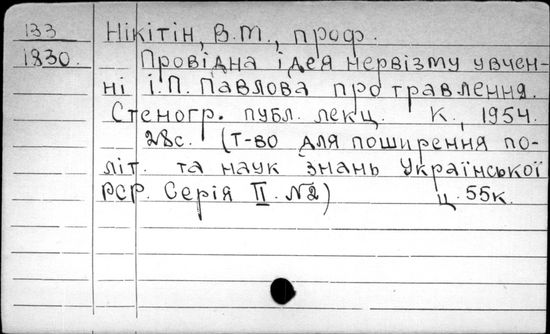 133 Нікітін, В.М., проф.
1830. Провідна ідея нервізму у вчен-
ні І.П. Павлова про травлення.
Стеногр. публ. лекц. К., 1954.
28с. (Т-во для поширення по-
літ. та наук знань Української
РСР. Серія II. №2) ц. 55к.